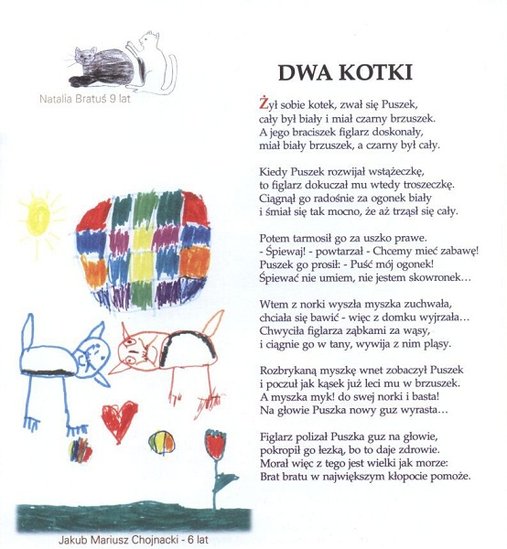 Natalia Bratuś 9 lat
DWA KOTKI
Żył sobie kotek, zwał się Puszek,
cały był biały i miał czarny brzuszek.
A jego braciszek figlarz doskonały,
miał biały brzuszek, a czarny był cały.
Kiedy Puszek rozwijał wstążeczkę,
to figlarz dokuczał mu wtedy troszeczkę.
Ciągnął go radośnie za ogonek biały
i śmiał się tak mocno, że aż trząsł się cały.
Potem tarmosił go za uszko prawe.
- Śpiewaj! - powtarzał - Chcemy mieć zabawę!
Puszek go prosił: - Puść mój ogonek!
Śpiewać nie umiem, nie jestem skowronek...
Wtem z norki wyszła myszka zuchwała,
chciała się bawić - więc z domku wyjrzała...
Chwyciła figlarza ząbkami za wąsy,
i ciągnie go w tany, wywija z nim pląsy.
Rozbrykaną myszkę wnet zobaczył Puszek
i poczuł jak kąsek już leci mu w brzuszek.
A myszka myk! do swej norki i basta!
Na głowie Puszka nowy guz wyrasta...
Figlarz polizał Puszka guz na głowie,
pokropił go łezką, bo to daje zdrowie.
Morał więc z tego jest wielki jak morze:
Brat bratu w największym kłopocie pomoże.
Jakub Mariusz Chojnacki - 6 lat